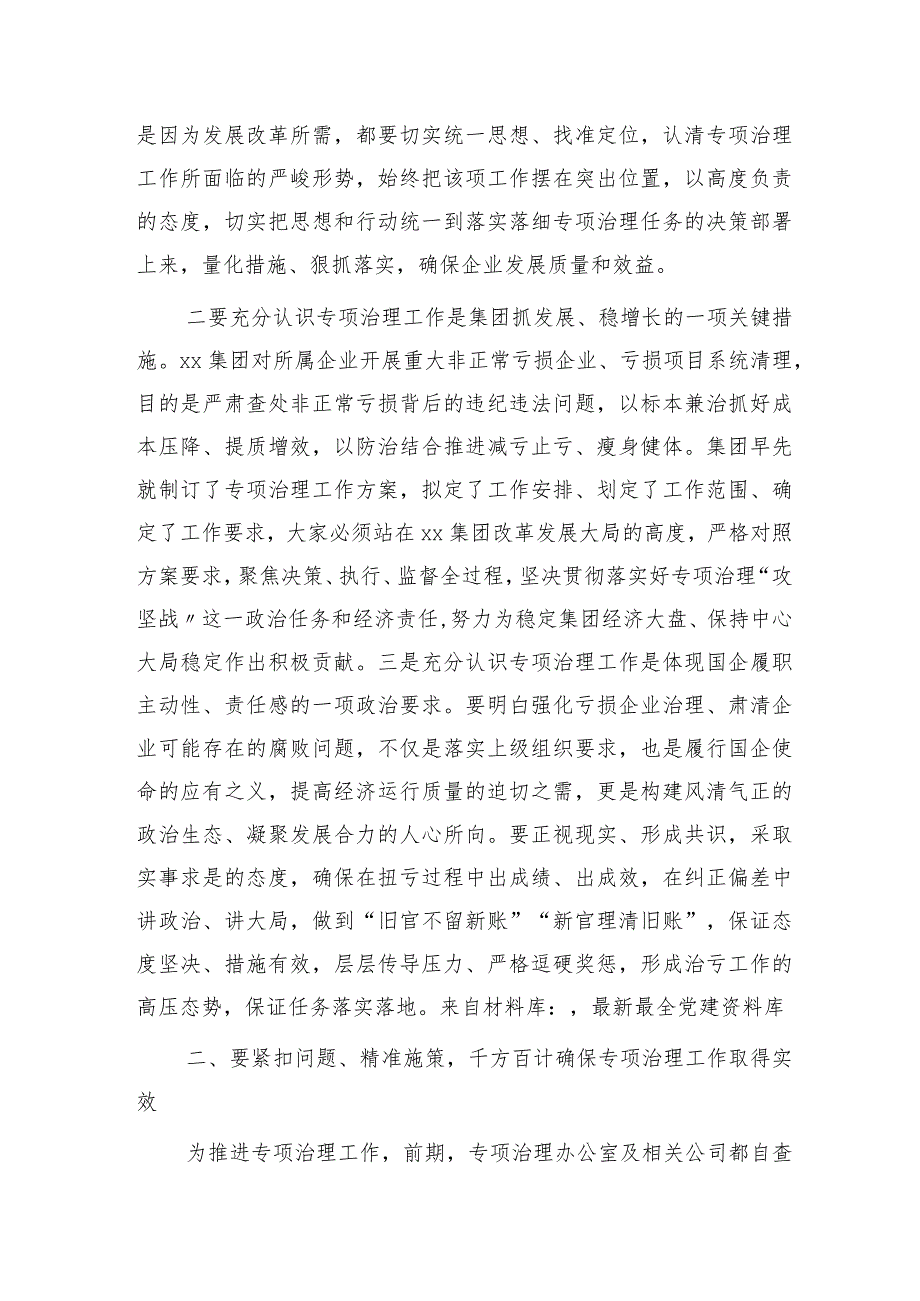 是因为发展改革所需，都要切实统一思想、找准定位，认清专项治理
工作所面临的严峻形势，始终把该项工作摆在突出位置，以高度负责
的态度，切实把思想和行动统一到落实落细专项治理任务的决策部署
上来，量化措施、狠抓落实，确保企业发展质量和效益。
二要充分认识专项治理工作是集团抓发展、稳增长的一项关键措
施。xx 集团对所属企业开展重大非正常亏损企业、亏损项目系统清理，
目的是严肃查处非正常亏损背后的违纪违法问题，以标本兼治抓好成
本压降、提质增效，以防治结合推进减亏止亏、瘦身健体。集团早先
就制订了专项治理工作方案，拟定了工作安排、划定了工作范围、确
定了工作要求，大家必须站在 xx 集团改革发展大局的高度，严格对照
方案要求，聚焦决策、执行、监督全过程，坚决贯彻落实好专项治理“攻
坚战〃这一政治任务和经济责任,努力为稳定集团经济大盘、保持中心
大局稳定作出积极贡献。三是充分认识专项治理工作是体现国企履职
主动性、责任感的一项政治要求。要明白强化亏损企业治理、肃清企
业可能存在的腐败问题，不仅是落实上级组织要求，也是履行国企使
命的应有之义，提高经济运行质量的迫切之需，更是构建风清气正的
政治生态、凝聚发展合力的人心所向。要正视现实、形成共识，采取
实事求是的态度，确保在扭亏过程中出成绩、出成效，在纠正偏差中
讲政治、讲大局，做到“旧官不留新账”“新官理清旧账”，保证态
度坚决、措施有效，层层传导压力、严格逗硬奖惩，形成治亏工作的
高压态势，保证任务落实落地。来自材料库：，最新最全党建资料库
二、要紧扣问题、精准施策，千方百计确保专项治理工作取得实
效
为推进专项治理工作，前期，专项治理办公室及相关公司都自查